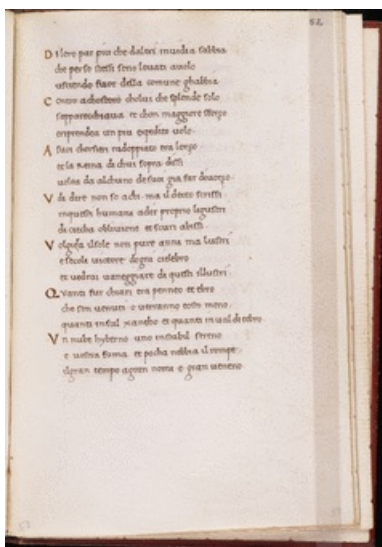 52
D i loro par piu che daltri inuidia sabbia
che per se stessi sono leuati auolo
uscendo fuore della comune ghabbia
C ontro acostoro cholui che splende solo
sapparecchiaua et chon maggiore sforzo
eriprendea un piu expedito uolo
A suoi chorsieri radoppiato era lorzo
et la Reina di chui sopra dissi
uolea da alchuno de suoi gia far diuorzo
V di dire non so achi ma il detto scrissi
inquesti humani adir proprio ligustri
di ciecha obliuione et scuri abissi
V olgiera ilsole non pure anni ma lustri
e secoli uictore dogni cielebro
et uedrai uaneggiare di questi illustri
Q uanti fur chiari tra penneo et ebro
che son uenuti o uerranno tosto meno
quanti insul xantho et quanti in ual di tebro
V n nube hyberno uno instabil sereno
e uostra fama et pocha nebbia il rompe
el gran tempo agran nomi e gran ueneno